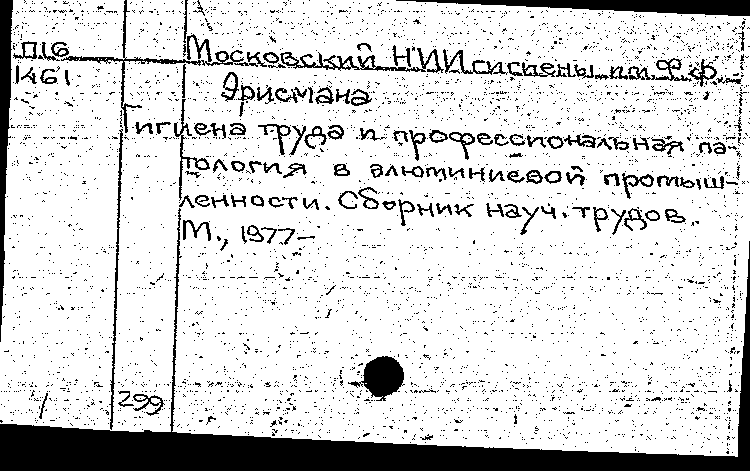 П16
1461
Московский НИИ гигиены им. Ф.Ф.
Эрисмана
Гигиена труда и профессиональная па-
тология в алюминиевой промыш-
ленности. Сборник науч. трудов.
М., 1977-
299